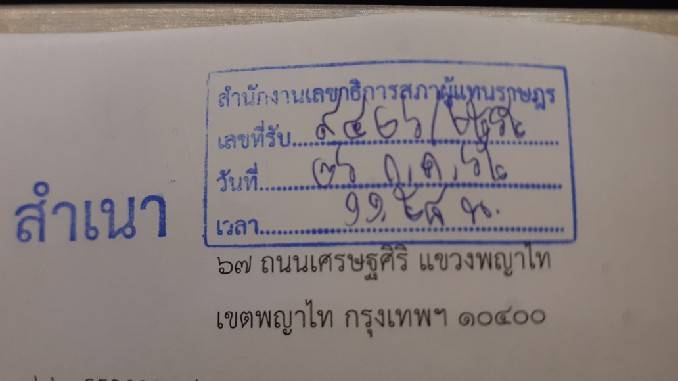 สำนักงานเลขาธิการสภาผู้แทนราษฎร
เลขที่รับ
วันที่ ๒๖ ก.ค. ๖๒
เวลา น.
สำเนา
๖๗ ถนนเศรษฐศิริ แขวงพญาไท
เขตพญาไท กรุงเทพฯ ๑๐๔๐๐